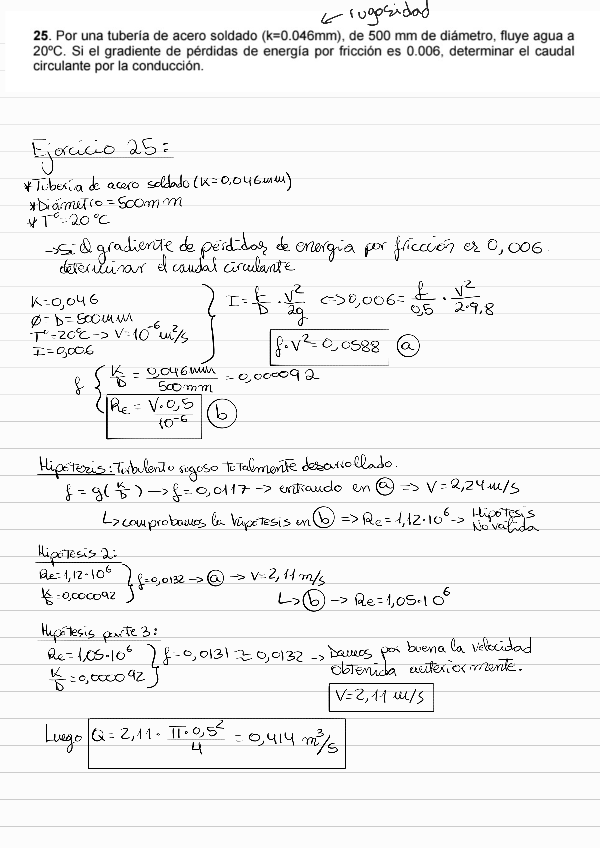 ← rugosidad
25. Por una tubería de acero soldado (k=0.046mm), de 500 mm de diámetro, fluye agua a
20ºC. Si el gradiente de pérdidas de energía por fricción es 0.006, determinar el caudal
circulante por la conducción.
Ejercicio 25:
* Tubería de acero soldado (K=0,046mm)
* Diámetro = 500mm
* Tª=20ºC
→ Si el gradiente de pérdidas de energía por fricción es 0,006.
determinar el caudal circulante
K=0,046
Ø=D=500mm
Tª=20ºC → V=10⁻⁶ m²/s
I=0,006
I = f/D · V²/2g ↔ 0,006 = f/0,5 · V²/2·9,8
f·V² = 0,0588 (a)
f { K/D = 0,046mm/500mm = 0,000092
Re = V·0,5/10⁻⁶ (b)
Hipótesis: Turbulento rugoso totalmente desarrollado.
f = g(K/D) → f = 0,0117 → entrando en (a) ⇒ V = 2,24 m/s
↳ comprobamos la hipótesis en (b) ⇒ Re = 1,12·10⁶ → Hipótesis No válida
Hipótesis 2:
Re=1,12·10⁶
K/D=0,000092
} f=0,0132 → (a) → V=2,11 m/s
↳ (b) → Re=1,05·10⁶
Hipótesis parte 3:
Re=1,05·10⁶
K/D=0,000092
} f=0,0131 ≈ 0,0132 → Damos por buena la velocidad
obtenida anteriormente.
V=2,11 m/s
Luego Q = 2,11 · π·0,5²/4 = 0,414 m³/s